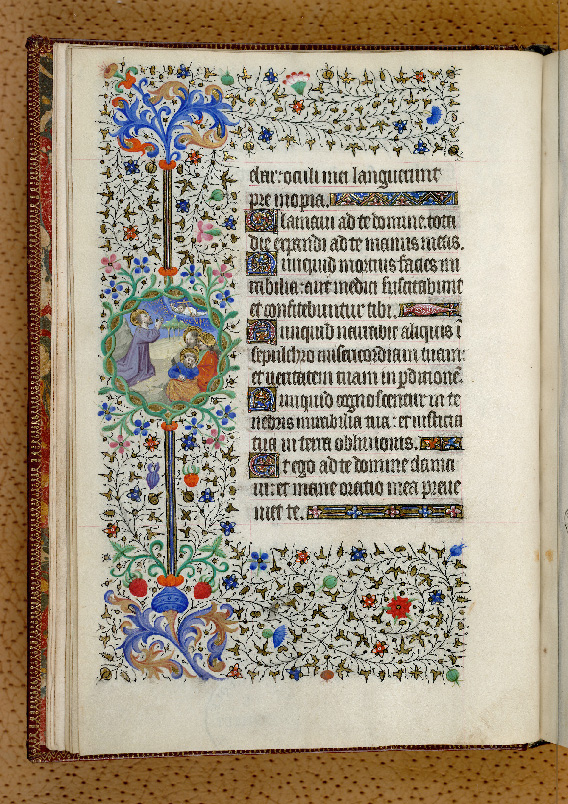 clar. oculi mei languerunt
pre inopia.
Clamaui ad te domine. tota
die expandi ad te manus meas.
Nunquid mortuis facies mi
rabilia: aut medici suscitabunt
et confitebuntur tibi.
Nunquid narrabit aliquis i
sepulchro misericordiam tuam:
et ueritatem tuam in pditione.
Nunquid cognoscentur in te
nebris mirabilia tua: et iusticia
tua in terra obliuionis.
Et ego ad te domine clama
ui: et mane oratio mea preue
niet te.